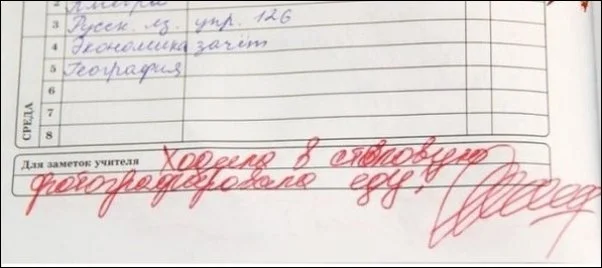 2 Алгебра
3 Русск. яз. упр. 126
4 Экономика зачёт
5 География
6
7
8
СРЕДА
Для заметок учителя Ходила в столовую
фотографировала еду.